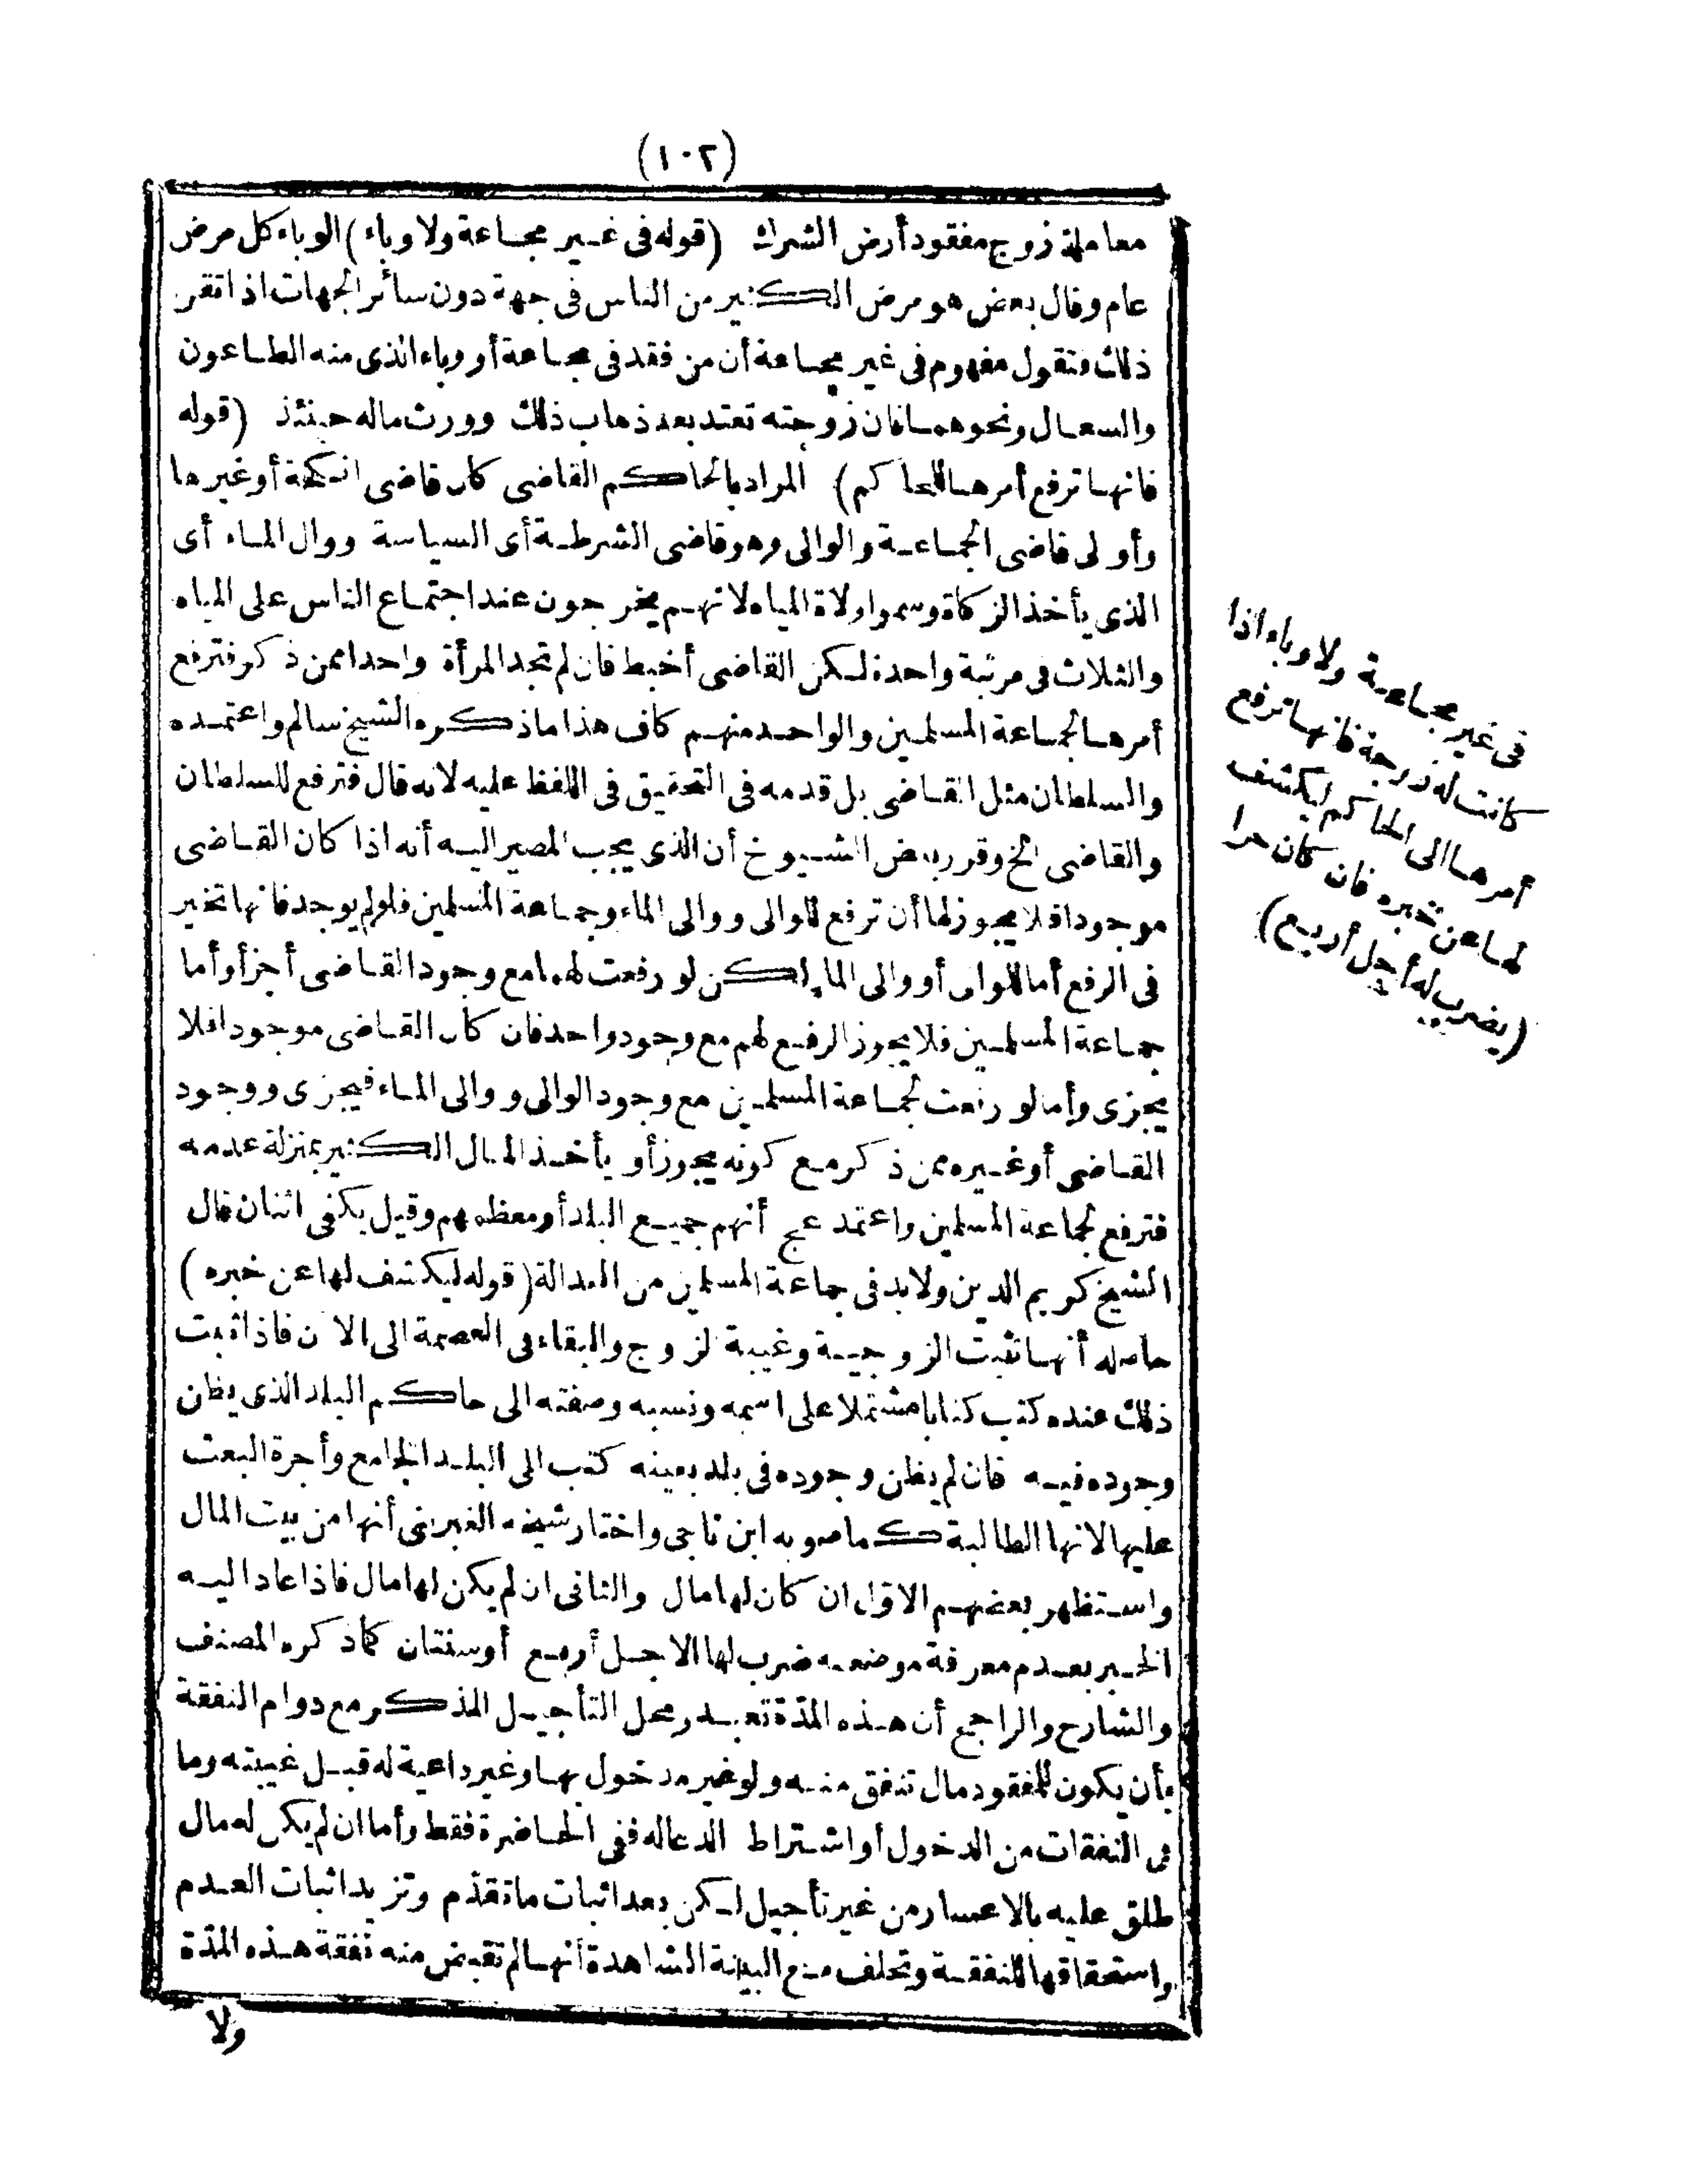 (١٠٢)
معاملة زوج مفقود أرض الشرك (قوله فى غير مجاعة ولا وباء) الوباء كل مرض
عام وقال بعض هو مرض الكثير من الناس فى جهة دون سائر الجهات اذا تقرر
ذلك فنقول مفهوم فى غير مجاعة أن من فقد فى مجاعة أو وباء الذى منه الطاعون
والسعال ونحوهما فان زوجته تعتد بعد ذهاب ذلك وورث ماله حينئذ (قوله
فانها ترفع أمرها للحاكم) المراد بالحاكم القاضى كان قاضى انكحة أو غيرها
وأولى قاضى الجماعة والوالى وهو قاضى الشرطة أى السياسة ووال الماء أى
الذى يأخذ الزكاة وسموا ولاة المياه لانهم يخرجون عند اجتماع الناس على المياه
والثلاث فى مرتبة واحدة لكن القاضى أضبط فان لم تجد المرأة واحدا ممن ذكر فترفع
أمرها لجماعة المسلمين والواحد منهم كاف هذا ما ذكره الشيخ سالم واعتمده
والسلطان مثل القاضى بل قدمه فى التحقيق فى اللفظ عليه لانه قال فترفع للسلطان
والقاضى الخ وقرر بعض الشيوخ أن الذى يجب المصير اليه أنه اذا كان القاضى
موجودا فلا يجوز لها أن ترفع للوالى ووالى الماء وجماعة المسلمين فلو لم يوجد فانها تخير
فى الرفع أما للوالى أو والى الماء لكن لو رفعت لهما مع وجود القاضى أجزأ وأما
جماعة المسلمين فلا يجوز الرفع لهم مع وجود واحد فان كان القاضى موجودا فلا
يجزى وأما لو رفعت لجماعة المسلمين مع وجود الوالى ووالى الماء فيجزى ووجود
القاضى أو غيره ممن ذكر مع كونه يجوز أو يأخذ المال الكثير بمنزلة عدمه
فترفع لجماعة المسلمين واعتمد عج أنهم جميع البلد أو معظمهم وقيل يكفى اثنان قال
الشيخ كريم الدين ولا بد فى جماعة المسلمين من العدالة (قوله ليكشف لها عن خبره)
حاصله أنها تثبت الزوجية وغيبة الزوج والبقاء فى العصمة الى الآن فاذا ثبت
ذلك عنده كتب كتابا مشتملا على اسمه ونسبه وصفته الى حاكم البلد الذى يظن
وجوده فيه فان لم يظن وجوده فى بلد بعينه كتب الى البلد الجامع وأجرة البعث
عليها لانها الطالبة كما صوبه ابن ناجى واختار شيخه الغبرينى أنها من بيت المال
واستظهر بعضهم الاول ان كان لها مال والثانى ان لم يكن لها مال فاذا عاد اليه
الخبر بعدم معرفة موضعه ضرب لها الاجل أربع أو سنتان كما ذكره المصنف
والشارح والراجح أن هذه المدة تعبد ومحل التأجيل المذكور مع دوام النفقة
بأن يكون للمفقود مال تنفق منه ولو غير مدخول بها وغير داعية له قبل غيبته وما
فى النفقات من الدخول أو اشتراط الدعاله ففى الحاضرة فقط وأما ان لم يكن له مال
طلق عليه بالاعسار من غير تأجيل لكن بعد اثبات ما تقدم وتزيد اثبات العدم
واستحقاقها للنفقة وتحلف مع البينة الشاهدة أنها لم تقبض منه نفقة هذه المدة
ولا
فى غير مجاعة ولا وباء اذا
كانت له زوجة فانها ترفع
أمرها الى الحاكم ليكشف
لها عن خبره فان كان حرا
(يضرب له أجل أربع)